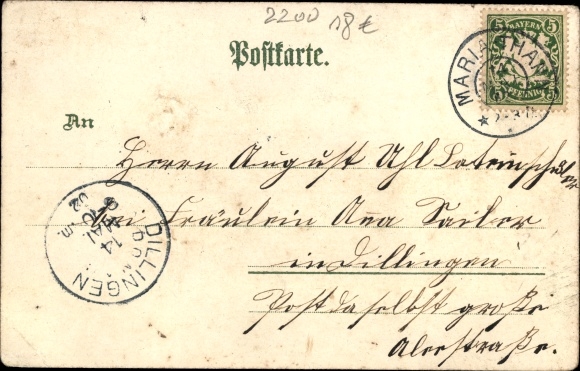 2200 18 €
Postkarte.
BAYERN
5 5
5 PFENNIG 5
MARIA THANN
An
Herrn August Uhl Lateinschüler
bei Fräulein Ana Sailer
in Dillingen
Post daselbst große
Aleestraße.
DILLINGEN
14
MAI
02